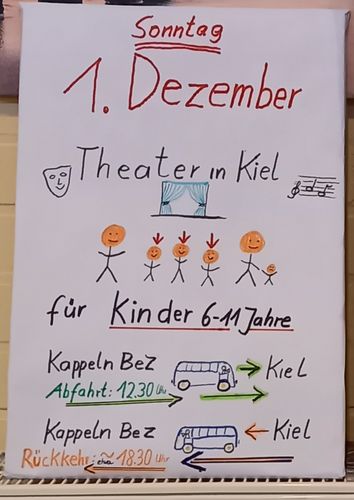 Sonntag
1. Dezember
Theater in Kiel
für Kinder 6-11 Jahre
Kappeln Bez → Kiel
Abfahrt: 12.30 Uhr
Kappeln Bez ← Kiel
Rückkehr: etwa ≈ 18.30 Uhr